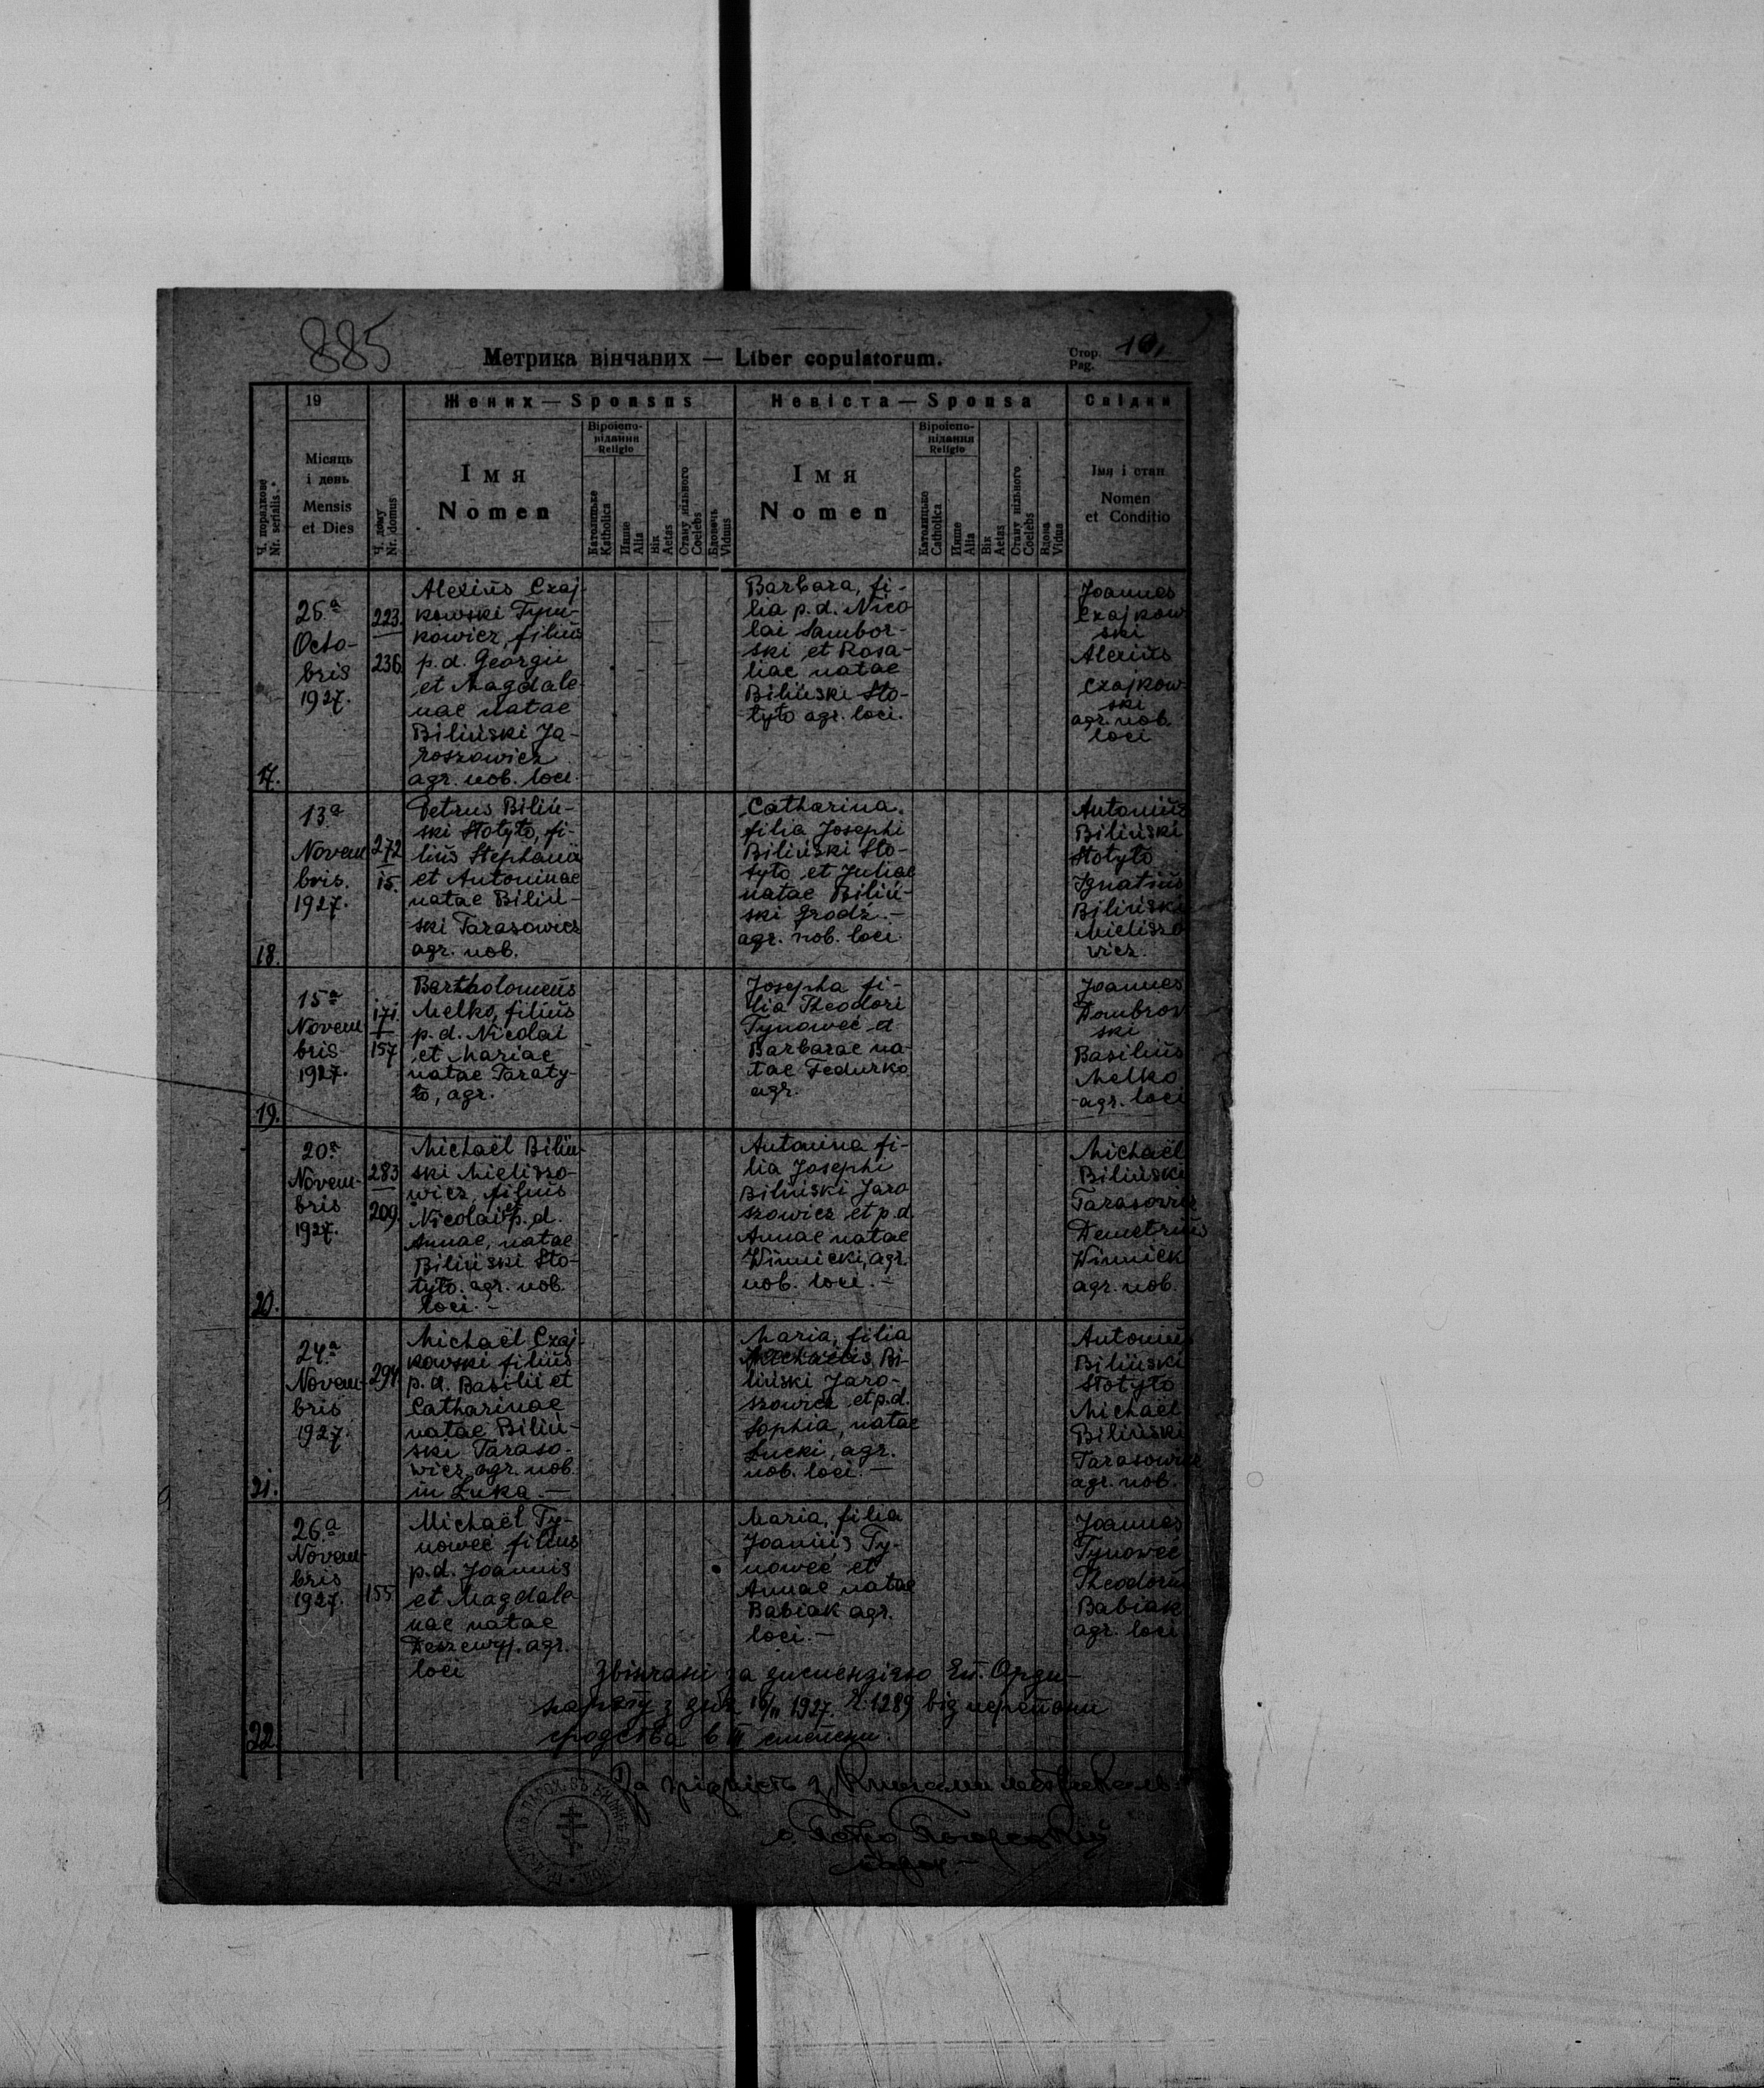 885
Метрика вінчаних — Liber copulatorum.
Стор.
Pag.
10,
Ч. порядкове
Nr. serialis.
19
Місяць
і день
Mensis
et Dies
Ч. дому
Nr. domus
Жених — Sponsus
Імя
Nomen
Віроіспо-
відання
Religio
Католицьке
Katholica
Инше
Alia
Вік
Aetas
Стану вільного
Coelebs
Вдовець
Viduus
Невіста — Sponsa
Імя
Nomen
Віроіспо-
відання
Religio
Католицько
Catholica
Инше
Alia
Вік
Aetas
Стану вільного
Coelebs
Вдова
Vidua
Свідки
Імя і стан
Nomen
et Conditio
17.
26.a
Octo-
bris
1927.
223.
236
Alexius Czaj-
kowski Tym-
kowicz, filius
p.d. Georgii
et Magdale-
nae natae
Biliński Ja-
roszowicz
agr. nob. loci.
Barbara, fi-
lia p.d. Nico
lai Sambor-
ski et Rosa-
liae natae
Biliński Sto-
tyto agr. loci.
Joannes
Czajkow
ski
Alexius
Czajkow-
ski
agr. nob.
loci
18.
13a
Novem
bris.
1927.
272
15.
Petrus Biliń-
ski Stotyto, fi-
lius Stephani
et Antoninae
natae Biliń-
ski Tarasowicz
agr. nob.
Catharina.
filia Josephi
Biliński Sto-
tyto et Juliae
natae Biliń-
ski Grodź. —
agr. nob. loci.
Antonius
Biliński
Stotyto
Ignatius
Biliński
Mielisso
wicz.
19.
15a
Novem
bris
1927.
171.
157
Bartholomeus
Melko, filius
p.d. Nicolai
et Mariae
natae Taraty-
to, agr.
Josepha fi-
lia Theodori
Tynoweć et
Barbarae na-
tae Fedurko
agr.
Joannes
Dombrow
ski
Basilius
Melko
agr. loci
20.
20a
Novem-
bris
1927.
283
209.
Michaël Biliń-
ski Mielisso-
wicz, filius
Nicolai et p.d.
Annae, natae
Biliński Sto-
tyto. agr. nob.
loci. —
Antonina fi-
lia Josephi
Biliński Jaro
szowicz et p.d.
Annae natae
Winnicki, agr.
nob. loci. —
Michaël
Biliński
Tarasowicz
Demetrius
Winnick
agr. nob.
21.
24.a
Novem-
bris
1927.
291.
Michaël Czaj-
kowski filius
p.d. Basilii et
Catharinae
natae Biliń-
ski Taraso-
wicz, agr. nob.
in Łuka. —
Maria, filia
Michaëlis Bi-
liński Jaro-
szowicz et p.d.
Sophia, natae
Łucki, agr.
nob. loci. —
Antonius
Biliński
Stotyto
Michaël
Biliński
Tarasowicz
agr. nob.
22
26.a
Novem-
bris
1927.
155
Michaël Ty-
noweć filius
p.d. Joannis
et Magdale
nae natae
agr.
loci
Maria, filia
Joannis Ty-
noweć et
Annae natae
Babiak agr.
loci. —
Joannes
Tynowec
Theodorus
Babiak
agr. loci
Звінчані за диспензією Еп. Орди-
наріяту з дня 1927. Ч. 1289 від перепони
зродства в степени.
За згідність з